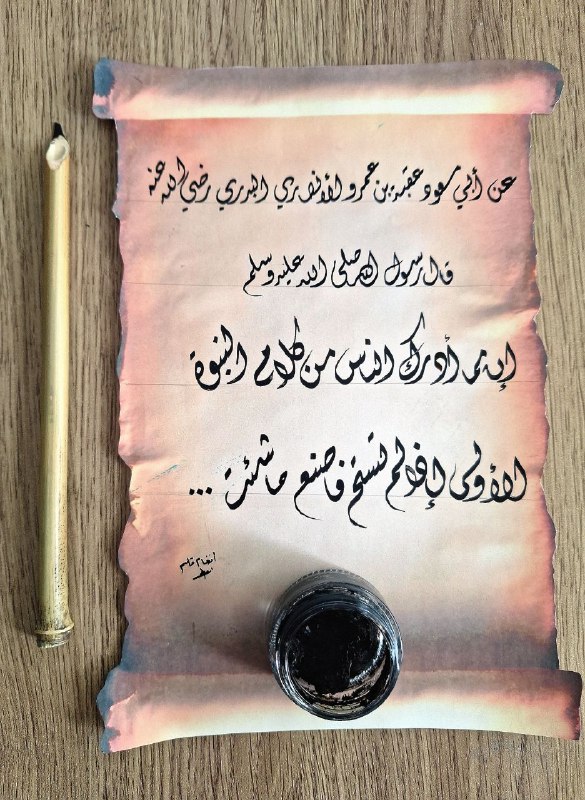 عن أبي مسعود عقبة بن عمرو الأنصاري البدري رضي الله عنه
قال رسول الله صلى الله عليه وسلم
إن مما أدرك الناس من كلام النبوة
الأولى إذا لم تستح فاصنع ما شئت ...
أنغام قاسم